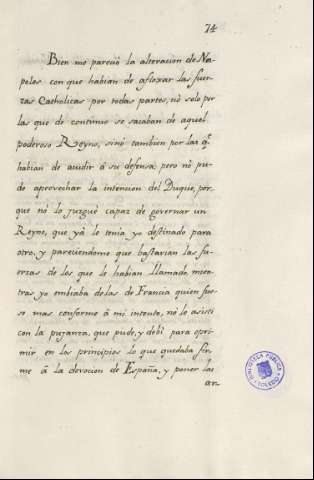 74
Bien me pareció la alteracion de Na-
poles con que habian de afloxar las fuer-
zas Catholicas por todas partes, nò solo por
las que de continuo se sacaban de aquel
poderoso Reyno, sinó tambien por las q.ᵉ
habian de acudir á su defensa, pero nò pu-
de aprovechar la intencion del Duque, por
que nò lo juzgué capaz de governar un
Reyno, que yá le tenia yo destinado para
otro, y pareciendome que bastarian las fu-
erzas de los que le habian llamado, mien
tras yo embiaba de las de Francia quien fue-
se mas conforme á mi intento, nò lo asistí
con la pujanza, que pude, y debí para opri-
mir en los principios lo que quedaba fir-
me á la devocion de España, y poner los
ar-
BIBLIOTECA PUBLICA
TOLEDO